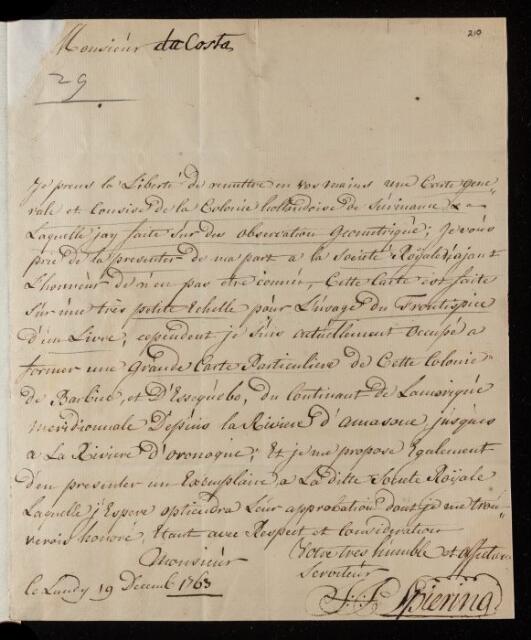 Monsieur da Costa
210
29
Je prens la Liberté de remettre en vos mains une Carte gene„
rale et Concise de la Colonie hollendoise de Surinam
Laquelle jay faite sur des observation Geometrique; Je vous
prie de la presenter de ma part a la Societé Royale, n'ajant
L'honneur de n'en pas etre connu, Cette Carte est faite
sur une très petite Echelle pour L'usage du Frontispice
d'un Livre; cependent je suis actuellement occupé a
former une Grande Carte Particuliere de Cette Colonie
de Barbice, et D'Essequebo, du Continant de Lamerique
meridionnale Depuis la Riviere d'amasone, jusques
a La Riviere d'oronoque; Et je me propose Egalement
d'en presenter un Exemplaire a La ditte Societe Royale
Laquelle j'Espere optiendra Leur approbation dont je me trou„
verois honoré, Etant avec Respect et consideration
Monsieur Votre tres humble et
Serviteur
le Lundy 19 Decemb. 1763